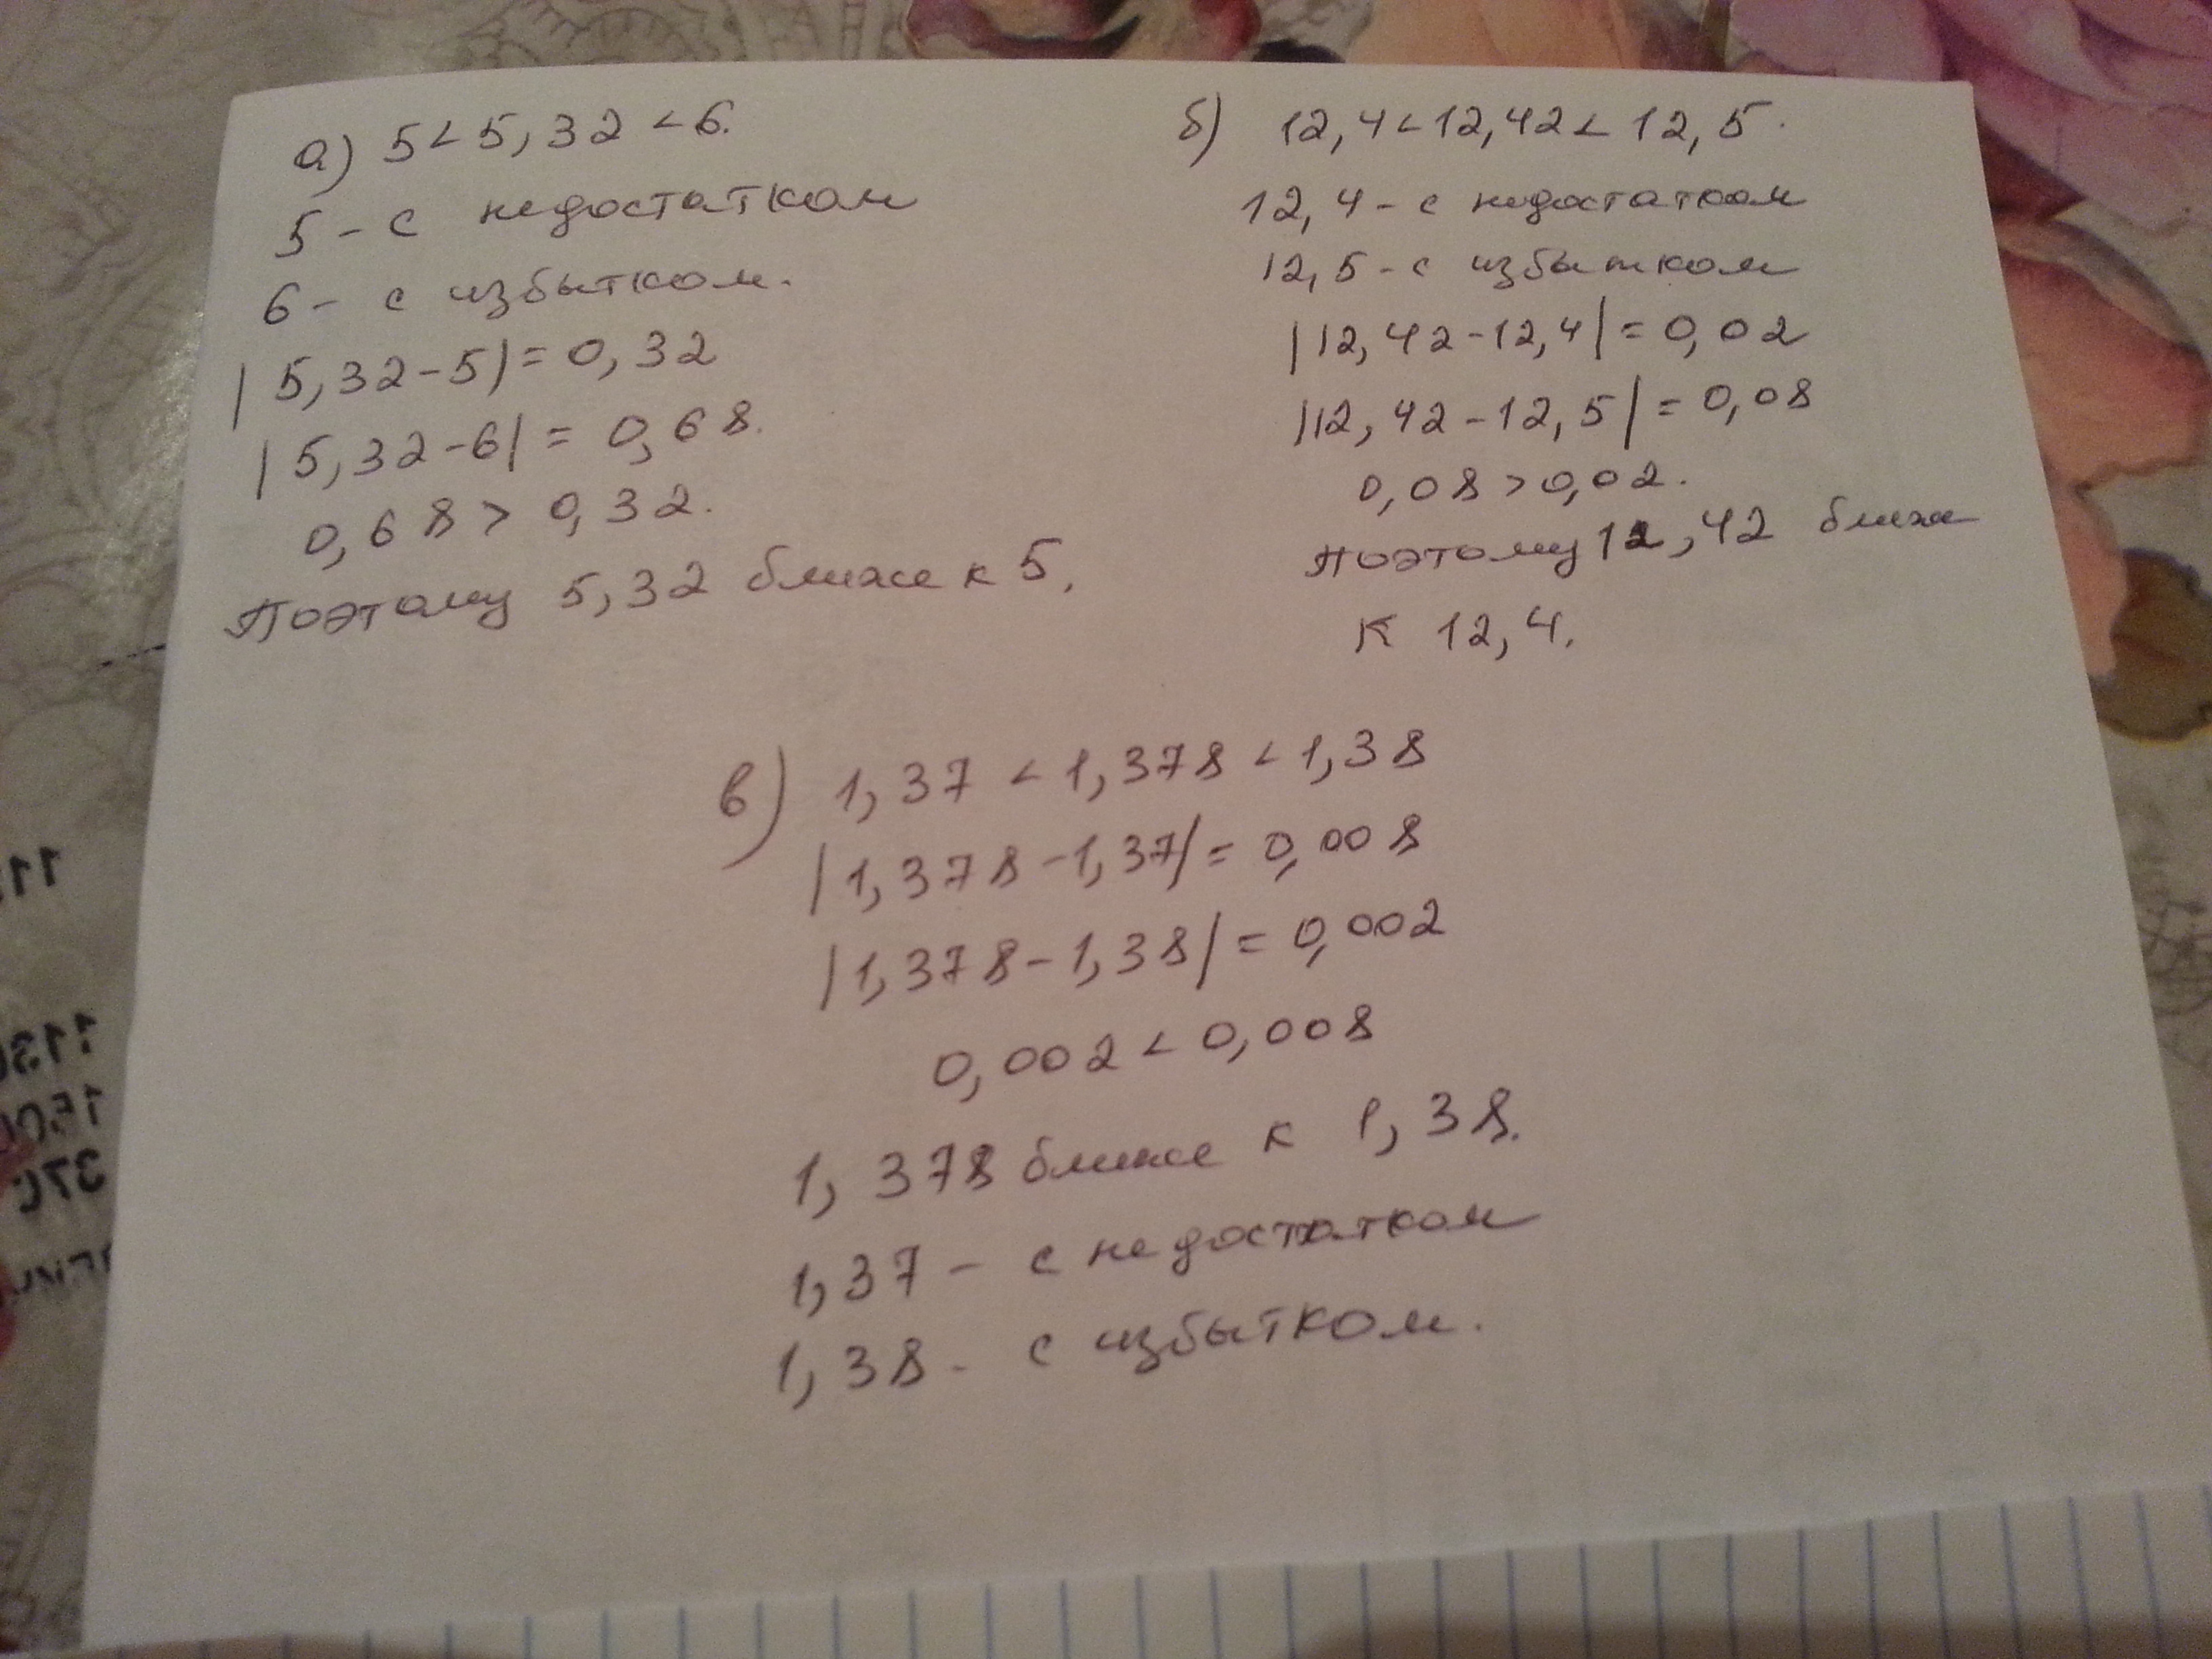 а) 5<5,32<6.
5 - с недостатком
6 - с избытком.
|5,32-5|=0,32
|5,32-6|=0,68.
0,68>0,32.
Поэтому 5,32 ближе к 5.
б) 12,4<12,42<12,5.
12,4 - с недостатком
12,5 - с избытком
|12,42-12,4|=0,02
|12,42-12,5|=0,08
0,08>0,02.
Поэтому 12,42 ближе
к 12,4.
в) 1,37<1,378<1,38
|1,378-1,37|=0,008
|1,378-1,38|=0,002
0,002<0,008
1,378 ближе к 1,38.
1,37 - с недостатком
1,38 - с избытком.